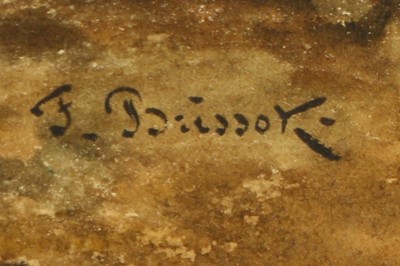 F. Brissot.